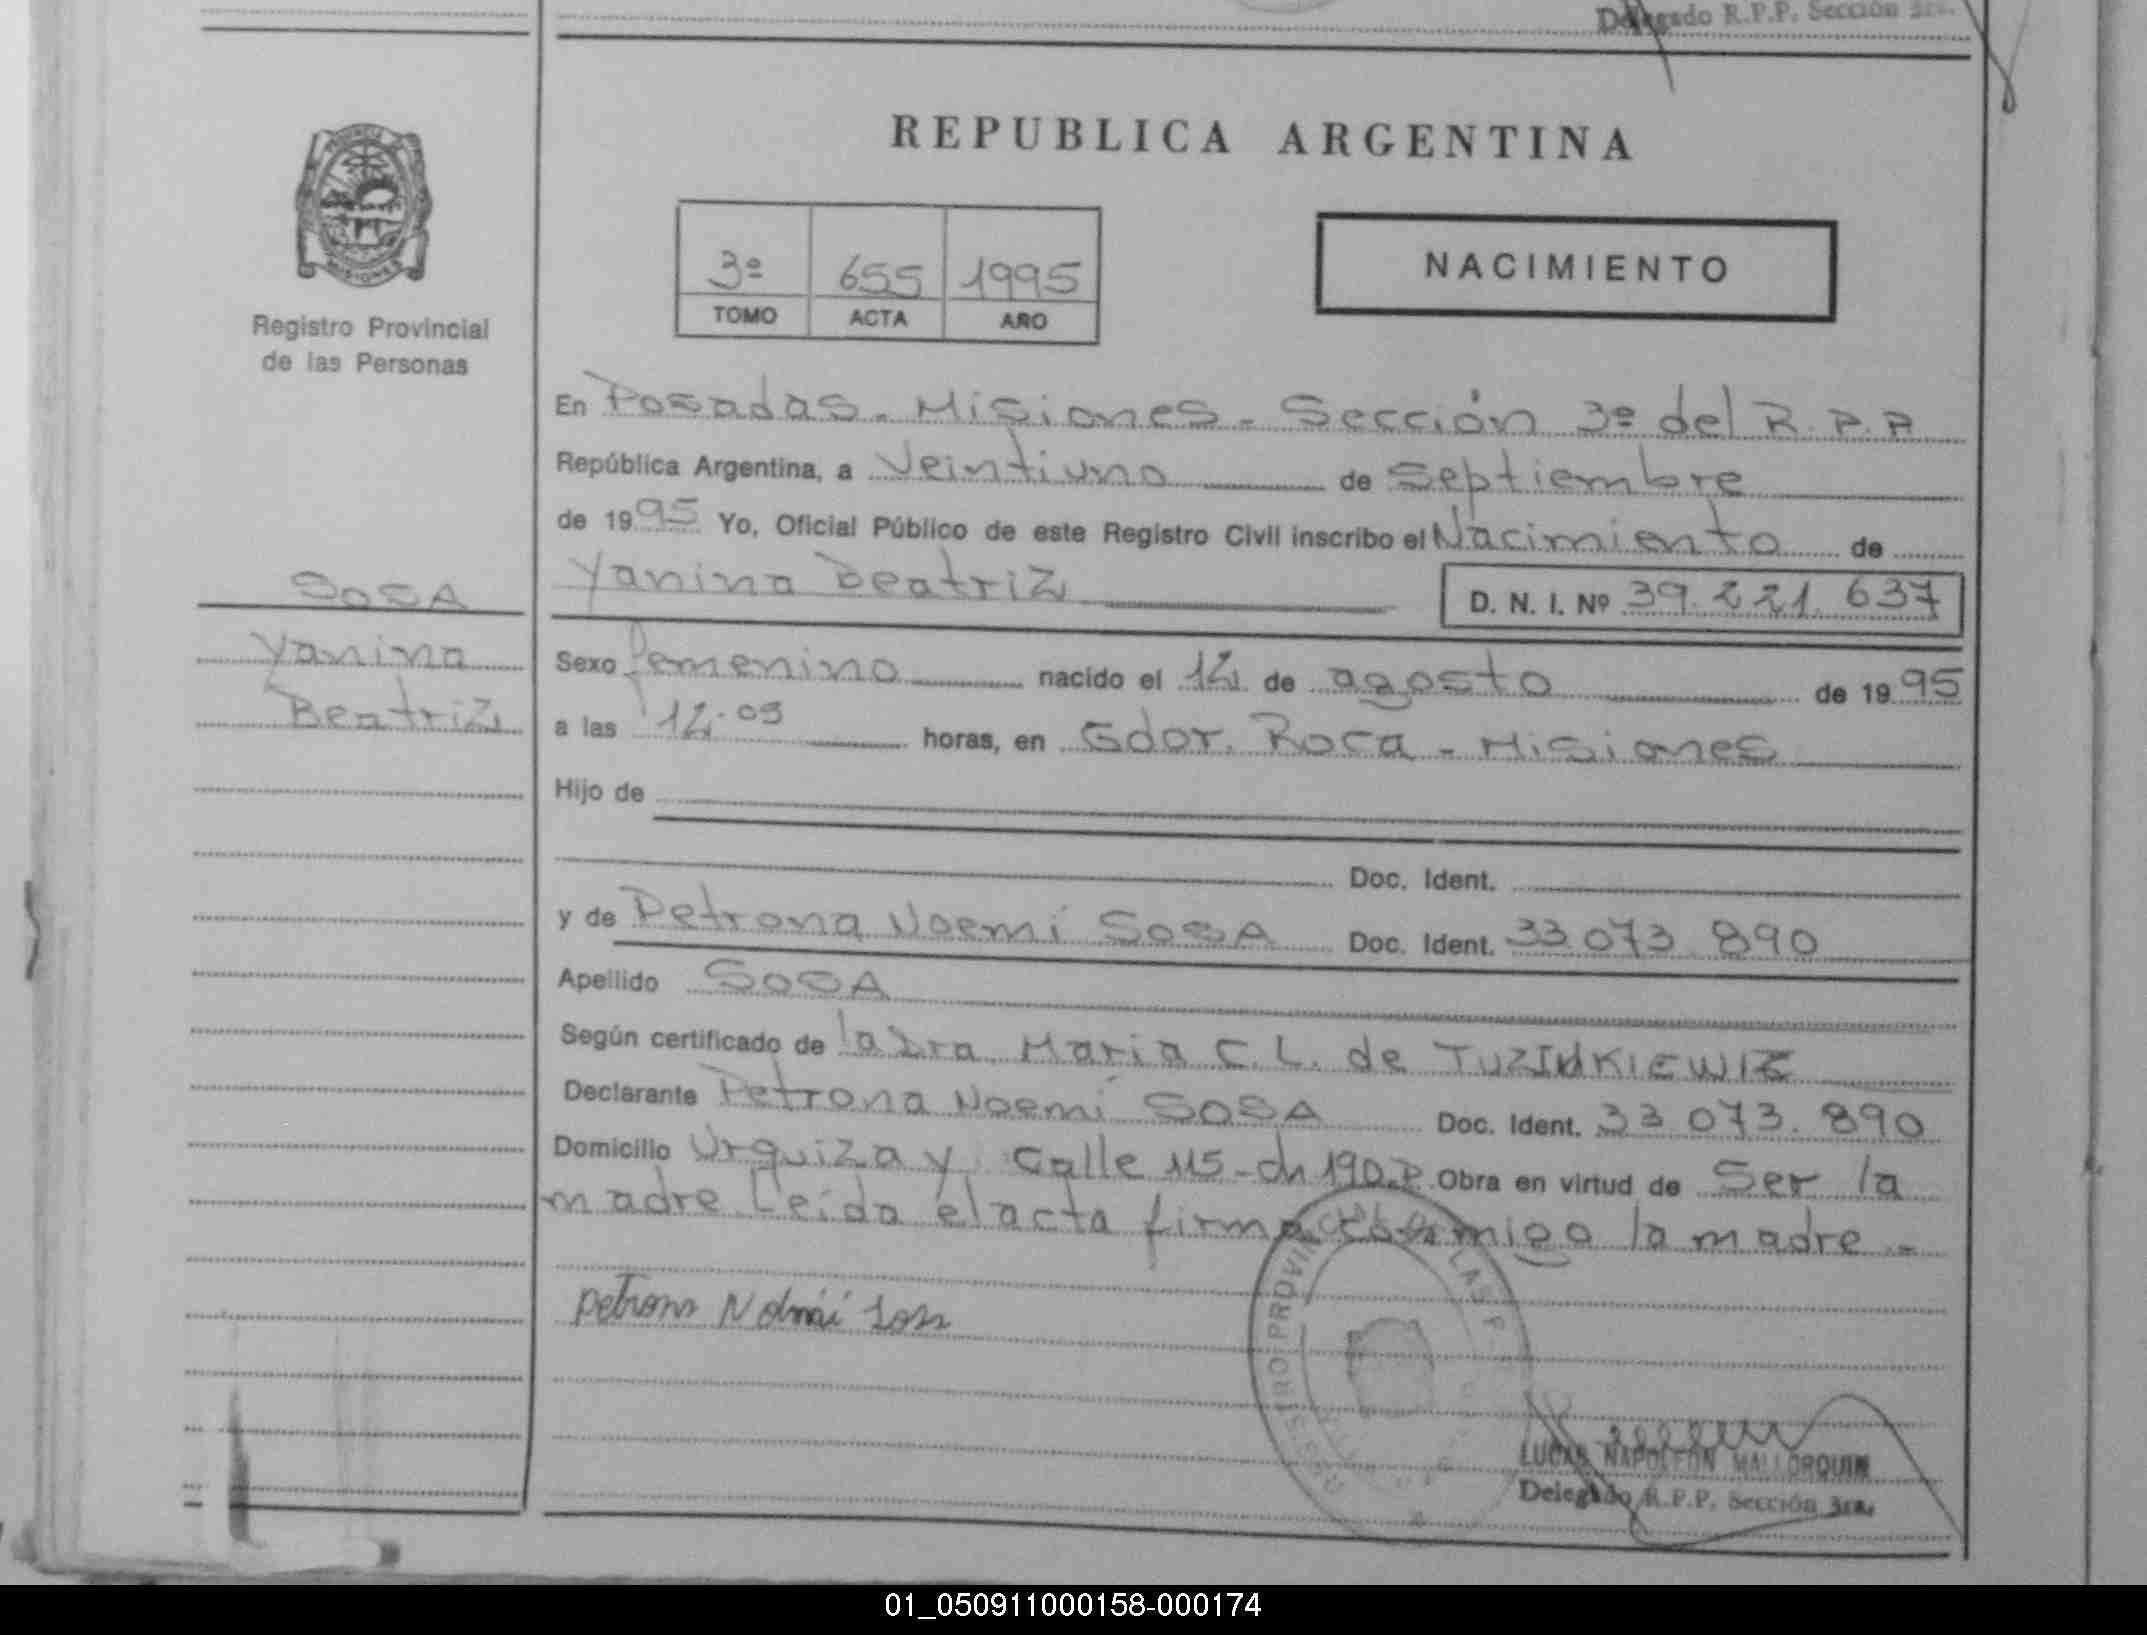 Delegado R.P.P. Sección 3ra.
REPUBLICA ARGENTINA
MISIONES
Registro Provincial
de las Personas
3º 655 1995
TOMO ACTA AÑO
NACIMIENTO
En Posadas - Misiones - Sección 3º del R.P.P.
República Argentina, a Veintiuno de Septiembre
de 1995 Yo, Oficial Público de este Registro Civil inscribo el Nacimiento de
Yanina Beatriz D. N. I. Nº 39.221.637
SOSA
Yanina
Beatriz
Sexo femenino nacido el 12 de agosto de 1995
a las 12.05 horas, en Gdor. Roca - Misiones
Hijo de
Doc. Ident.
y de Petrona Noemí SOSA Doc. Ident. 33 073 890
Apellido SOSA
Según certificado de la Dra María C. L. de
Declarante Petrona Noemí SOSA Doc. Ident. 33 073. 890
Domicilio Urquiza y Calle 115 - ch 190.P. Obra en virtud de Ser la
madre. Leída el acta firma conmigo la madre. -
Petrona Noemí Sosa
LUCAS NAPOLEON MALLORQUIN
Delegado R.P.P. Sección 3ra.
01_050911000158-000174